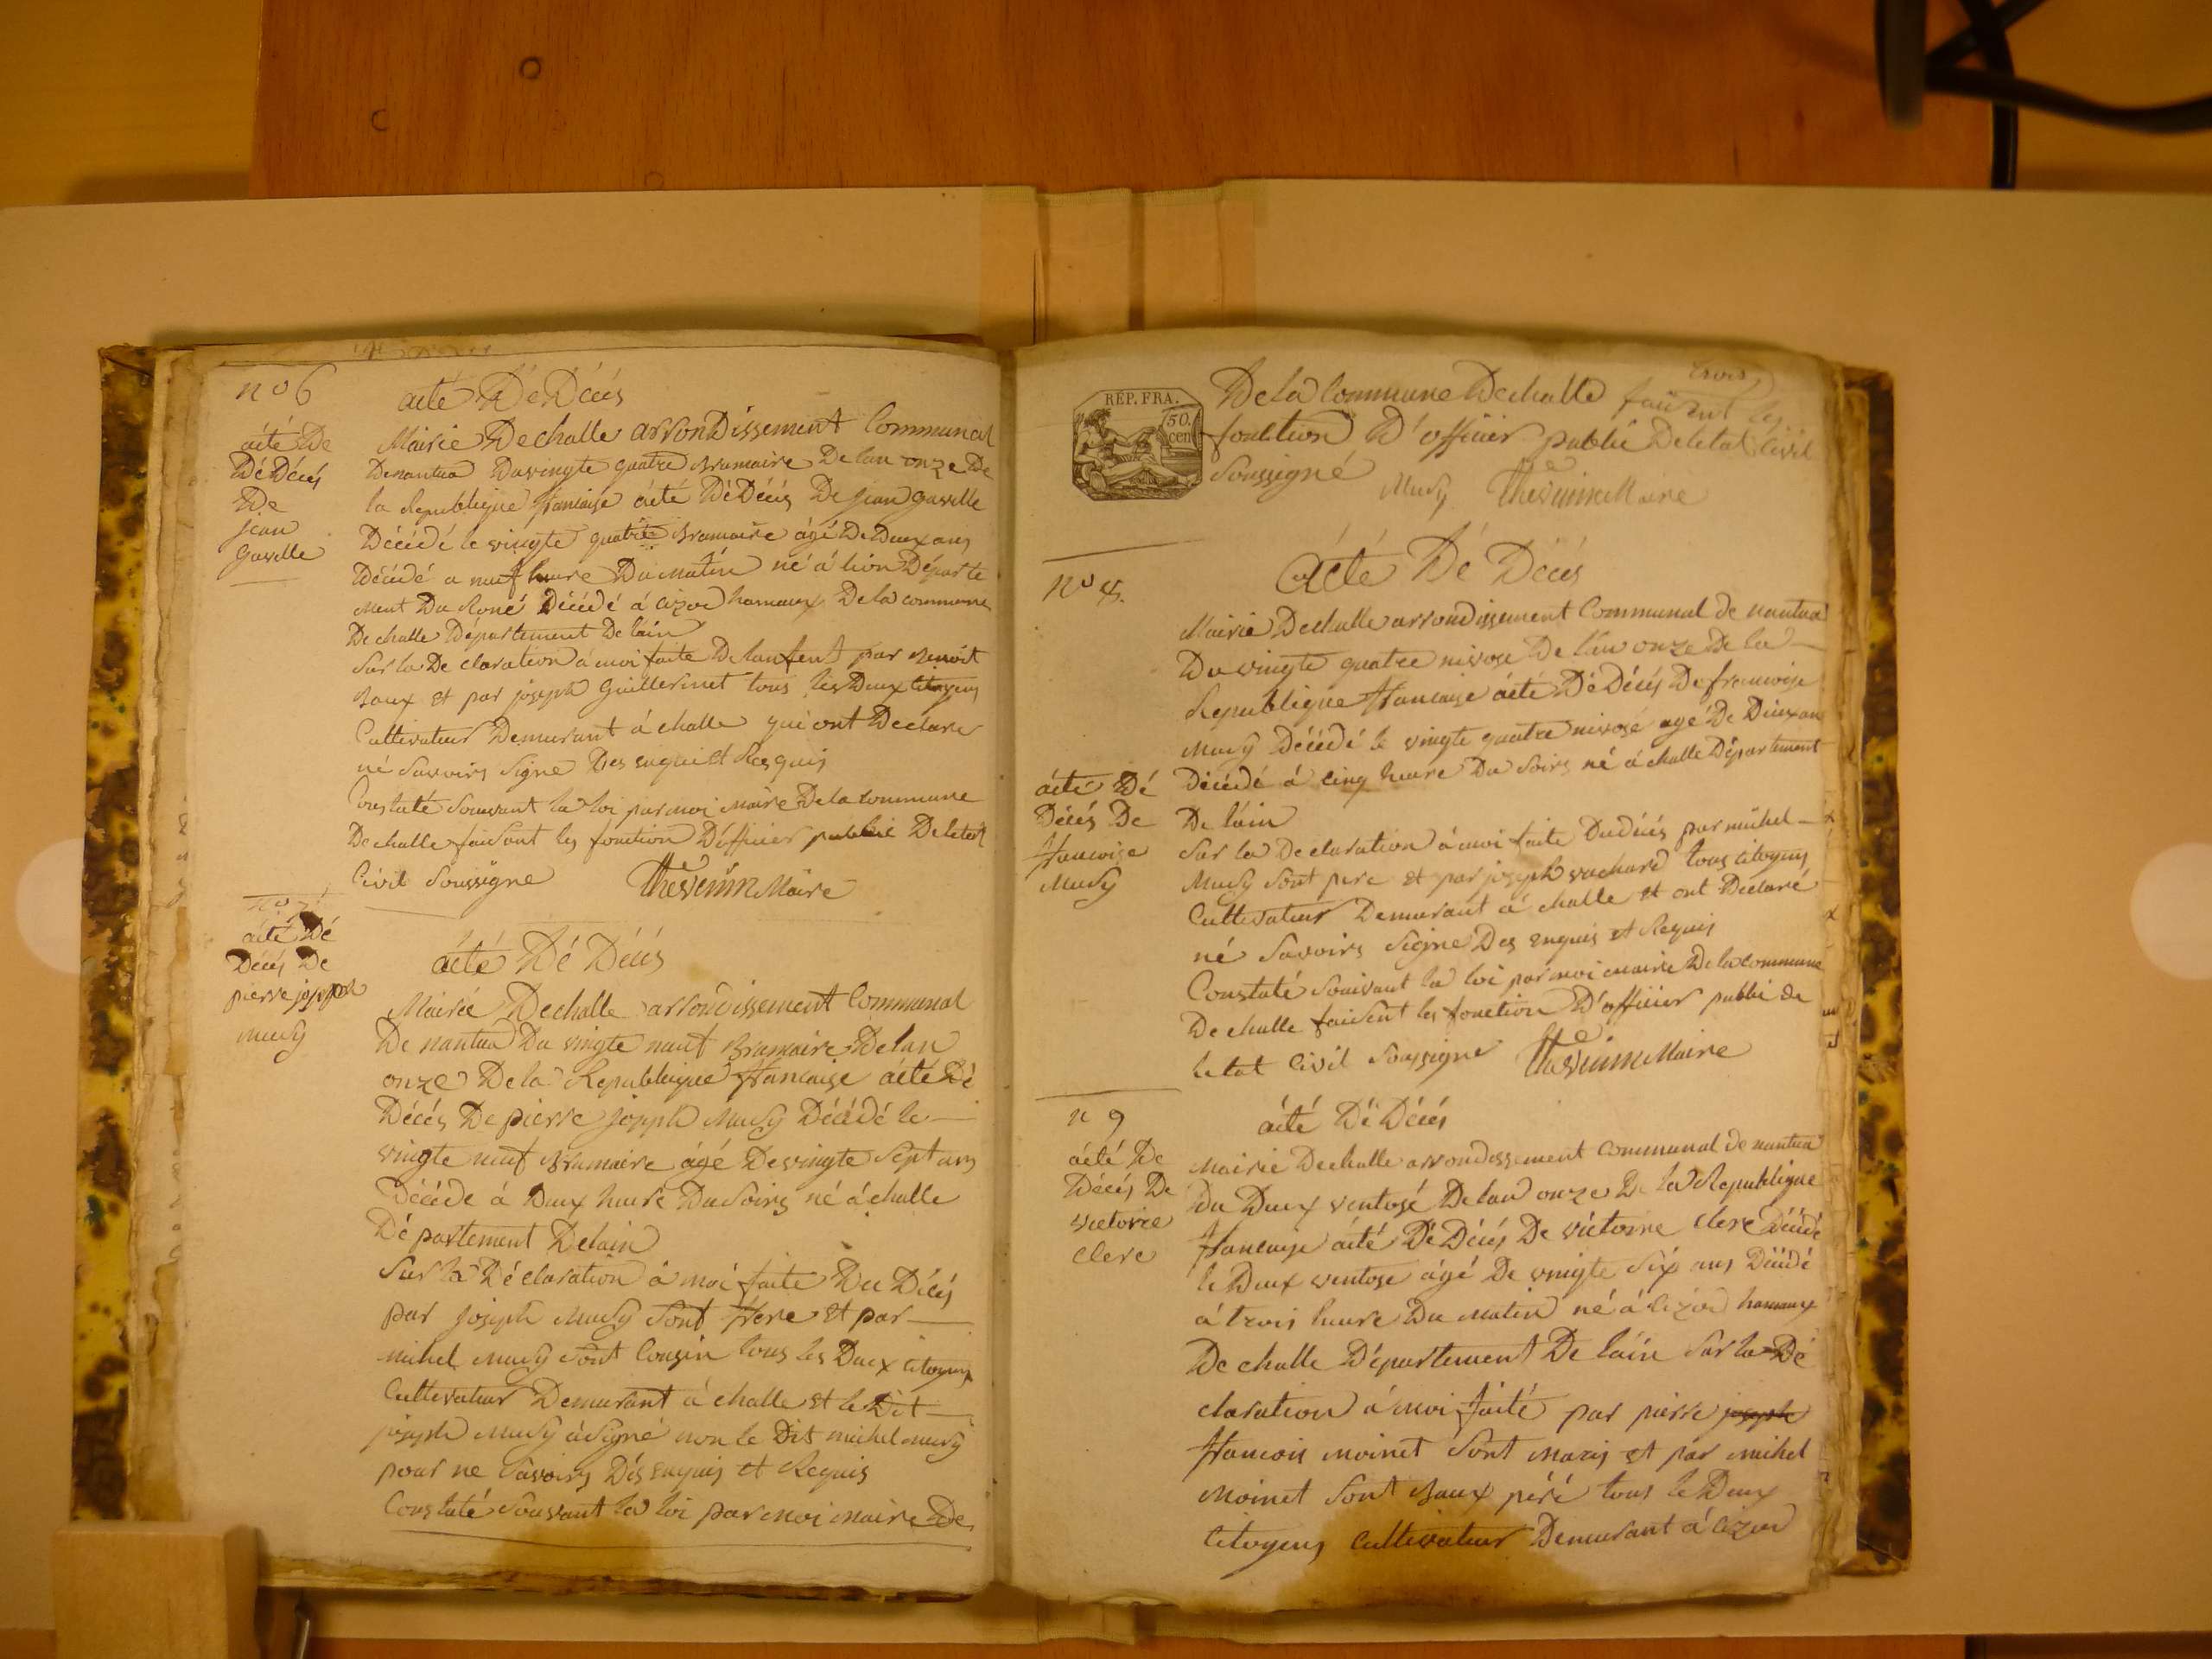 no 6
acté Dé Décés
acté De
Dé Décés
De
jean
gavelle
Mairie De challe arronDissement Communal
De nantua Du vingte quatre Brumaire De lan onze De
la Republieque francaise acté Dé Décés De jean gavelle
Décédé le vingte quatre Brumaire âgé De Deux ans
Décédé a neuf heure Du matin né á lion Départe
ment Du Roné Décédé á cizod hameaux De la commune
De challe Département De lain
Sur la De claration á moi faite De lanfent par Benoit
Baux et par joseph Guillermet tous les Deux Citoyens
Cultivateur Demurant á challe qui ont Declare
né Savoirs Signe Des enquit et Requis
Constaté Souvant la loi par moi maire De la commune
De challe faisant les fonction D'officier public De letat
Civil Soussigne Thevenin Maire
no 7
acté Dé
Décés De
pierre joseph
mudy
acté Dé Décés
Mairié De challe arrondissement Communal
De nantua Du vingte neuf Brumaire De lan
onze De la Republieque francaise acté Dé
Décés De pierre joseph Mudy Décédé le
vingte neuf Brumaire âgé De vingte Sept ans
Décéde á Deux heure Du Soirs né á challe
Dé partement De lain
Sur la Déclaration á moi faite Du Décés
par joseph Mudy Sont frere et par
michel mudy Sont Cousin tous les Deux citoyens
Cultivateur Demurant á challe et le Dit
joseph Mudy á Signé non le Dit michel mudy
pour ne Savoirs Dés enquis et Requis
Constaté Souvant la loi par moi maire De
trois
RÉP. FRA.
50.
cen
De la Commune De challe faisent les
fonction D'officier public De letat civil
Soussigné Mudy Thevenin Maire
no 8.
Acté Dé Décés
Mairie De challe arrondissement Communal de nantua
Du vingte quatre nivose De lan onze De la
Republieque francaise acté Dé Décés De francoise
Mudy Décédé le vingte quatre nivose agé De Deux an
Décédé á cinq heure Du Soirs né á challe Département
De láin
acté Dé
Décés De
francoise
Mudy
Sur la Declaration á moi faite Du décés par michel
Mudy Sont pere et par joseph vuchard tous Citoyens
Cultivateur Demurant á challe et ont Declaré
né Savoirs Signe Des enquis et Requis
Constaté Souivant la loi par moi mairie De la commune
De challe faisent les fonction D'officier publié de
letat Civil Soussigne Thevenin Maire
n 9
acté Dé Décés
acté De
Décés De
victoire
Clerc
Mairie De challe arrondissement communal de nantua
Du Deux ventosé De lan onze De la Republieque
francaise acté Dé Décés De victoire Clerc Décédé
le Deux ventose âgé De vingte Six ans Décédé
á trois heure Du matin né á cizod hameaux
De challe Département De láin Sur la Dé
claration á moi faité par pierre joseph
francois moinet Sont Maris et par michel
Moinet Sont Baux péré tous le Deux
Citoyens Cultivateur Demurant á cizod